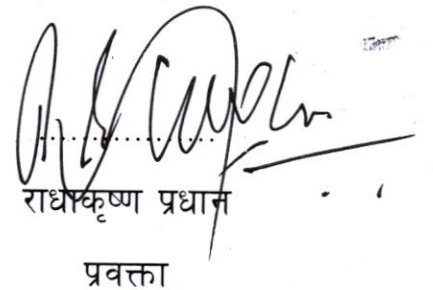 ...............
राधाकृष्ण प्रधान
प्रवक्ता